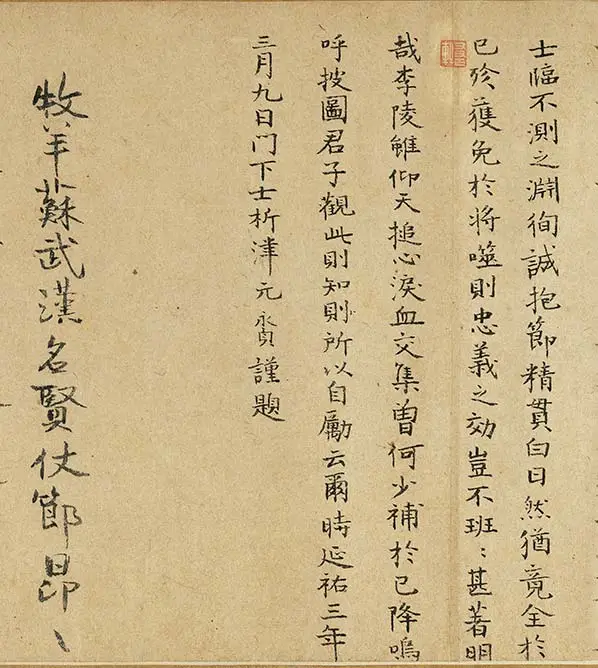 士臨不測之淵徇誠抱節精貫白日然猶竟全於
已殄獲免於將噬則忠義之効豈不班〻甚著明
哉李陵雖仰天搥心淚血交集曾何少補於已降嗚
呼披圖君子觀此則知所以自勵云爾時延祐三年
三月九日門下士析津元賁謹題
牧羊蘇武漢名賢仗節昂〻